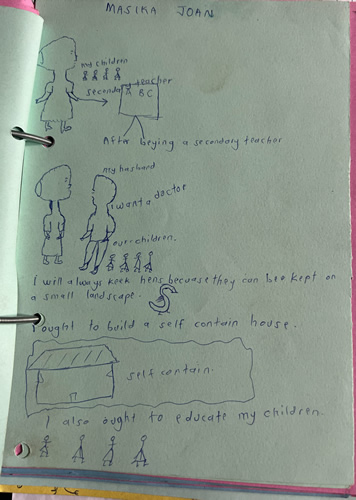 MASIKA JOAN
my children
secondary teacher
A B C
After beying a secondary teacher
my husband
I want a doctor
our children.
I will always keek hens becuase they can be kept on
a small landscape.
I ought to build a self contain house.
self contain.
I also ought to educate my children